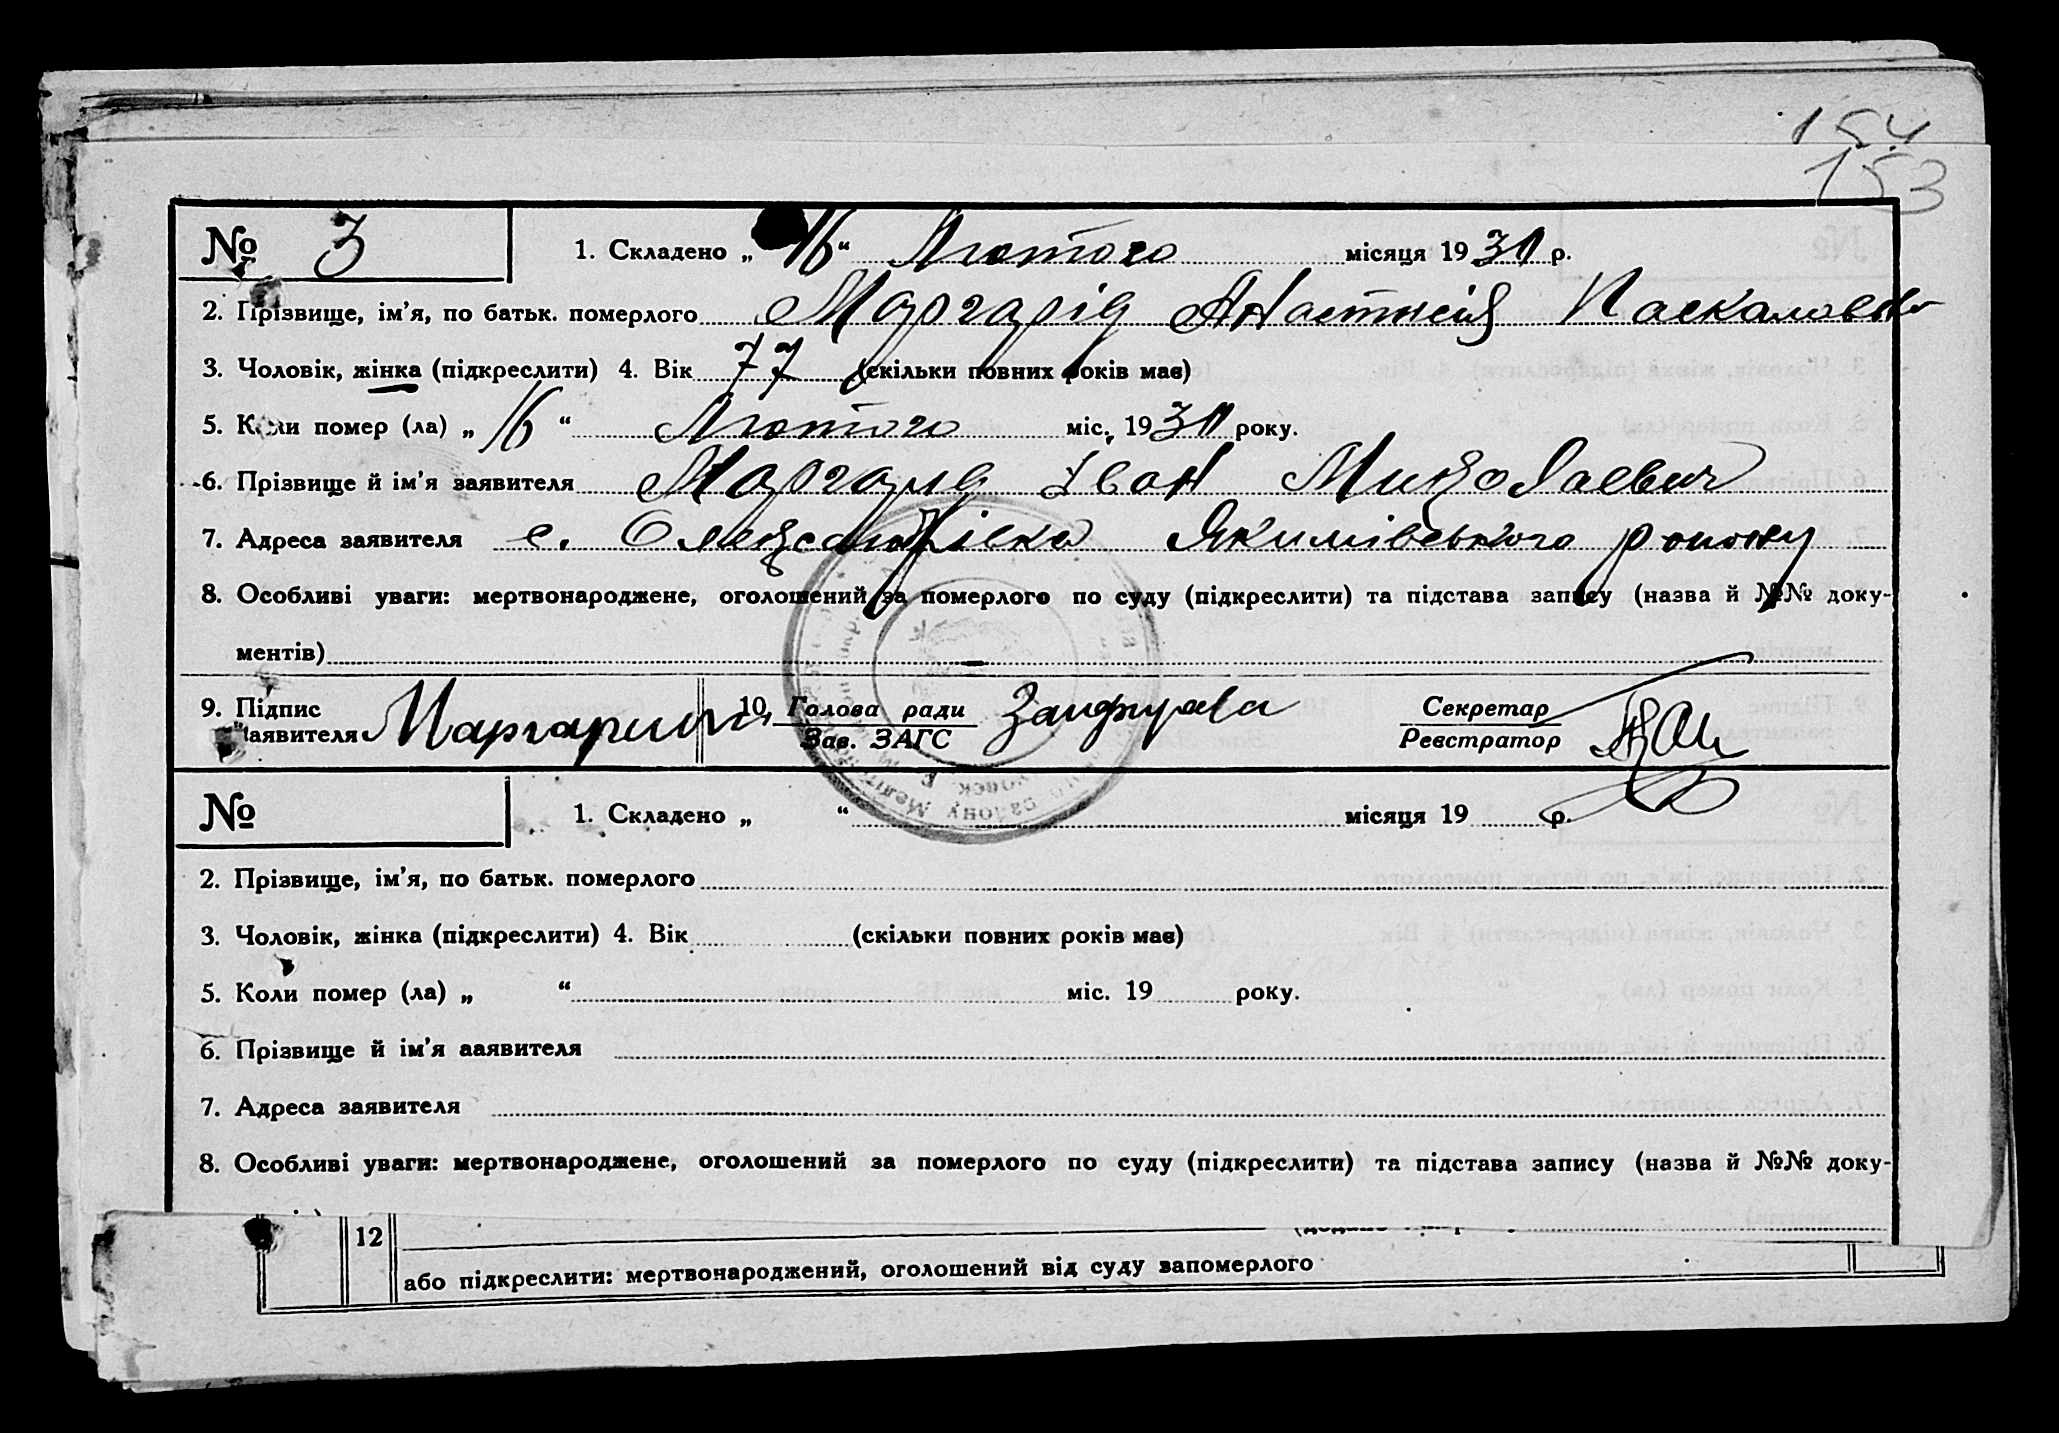 154
153
№ 3 1. Складено „ 16 “ Лютого місяця 1931 р.
2. Прізвище, ім'я, по батьк. померлого Маргарід Анастасія Паскаловна
3. Чоловік, жінка (підкреслити) 4. Вік 77 (скільки повних років має)
5. Коли помер (ла) „ 16 “ Лютого міс. 1931 року.
6. Прізвище й ім'я заявителя Маргарид Іван Миколаевич
7. Адреса заявителя с. Олександрівка Якимівського району
8. Особливі уваги: мертвонароджене, оголошений за померлого по суду (підкреслити) та підстава запису (назва й №№ доку-
ментів)
9. Підпис заявителя 10. Голова ради Зав. ЗАГС Секретар Реєстратор
№ 1. Складено „ “ місяця 19 р.
2. Прізвище, ім'я, по батьк. померлого
3. Чоловік, жінка (підкреслити) 4. Вік (скільки повних років має)
5. Коли помер (ла) „ “ міс. 19 року.
6. Прізвище й ім'я аявителя
7. Адреса заявителя
8. Особливі уваги: мертвонароджене, оголошений за померлого по суду (підкреслити) та підстава запису (назва й №№ доку-
12
або підкреслити: мертвонароджений, оголошений від суду запомерлого